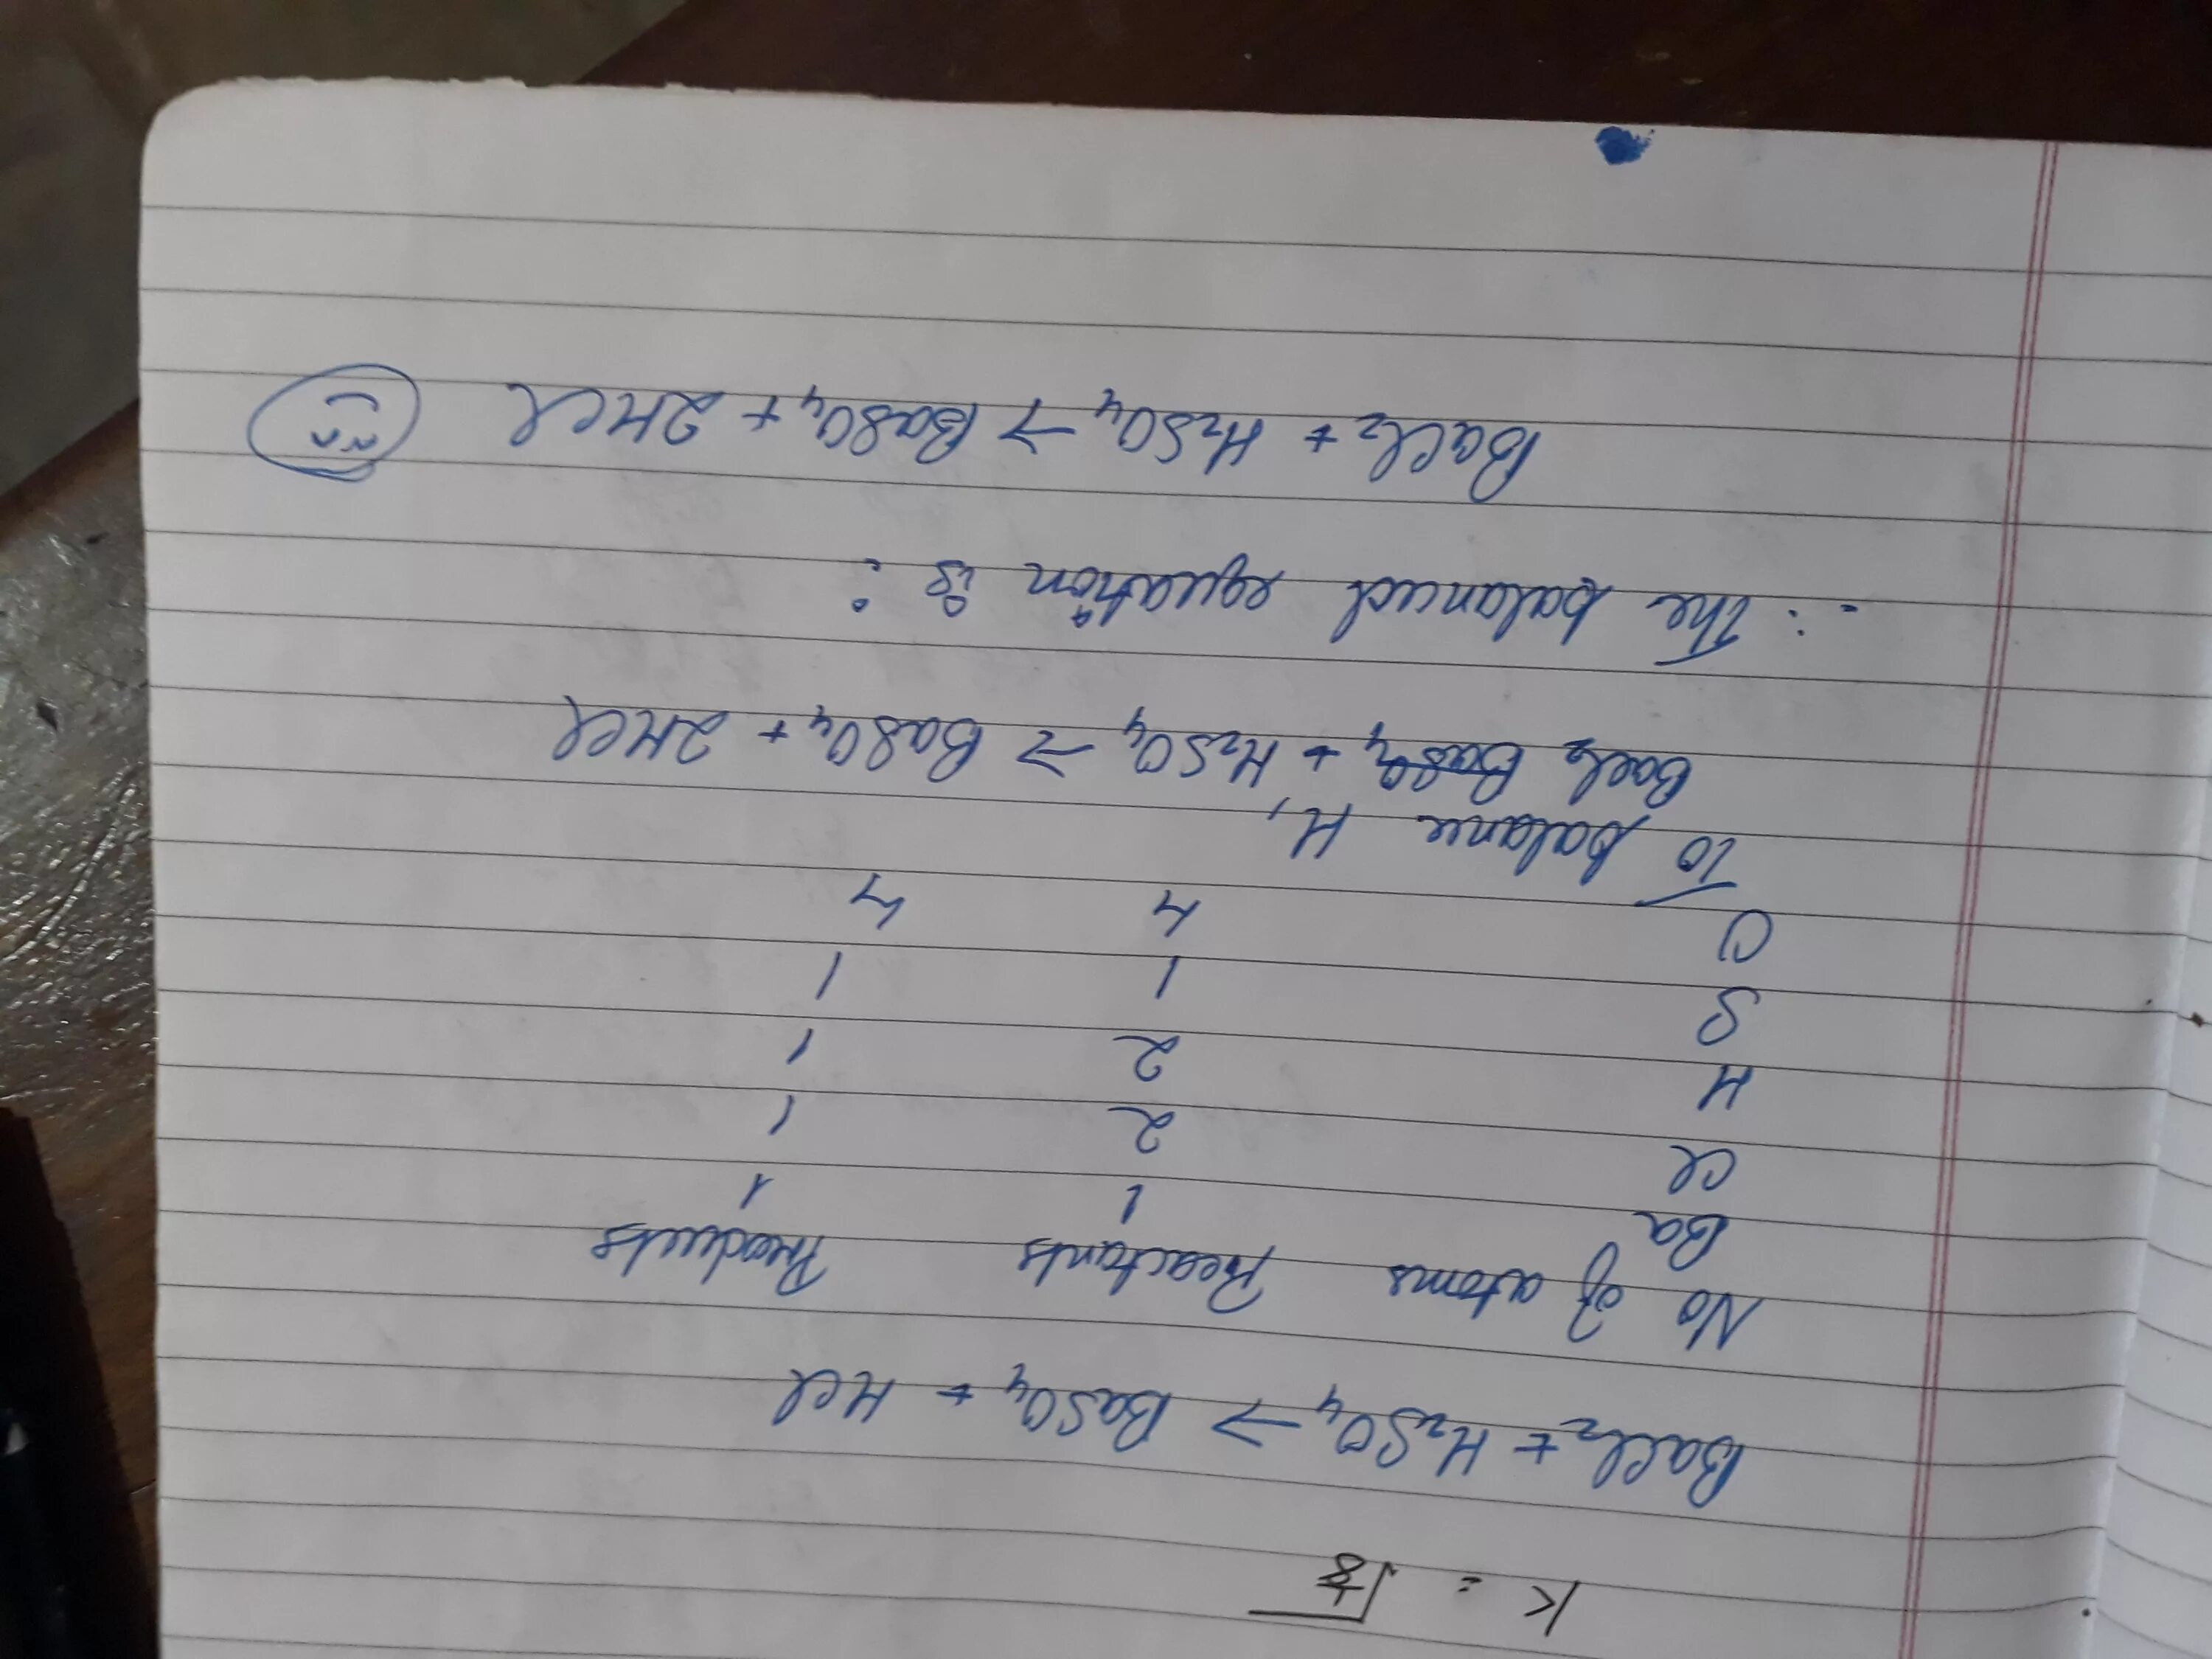 K = √
BaCl₂ + H₂SO₄ → BaSO₄ + HCl
No of atoms Reactants Products
Ba 1 1
Cl 2 1
H 2 1
S 1 1
O 4 4
To balance H,
BaCl₂ BaSO₄ + H₂SO₄ → BaSO₄ + 2HCl
∴ The balanced equation is :
BaCl₂ + H₂SO₄ → BaSO₄ + 2HCl